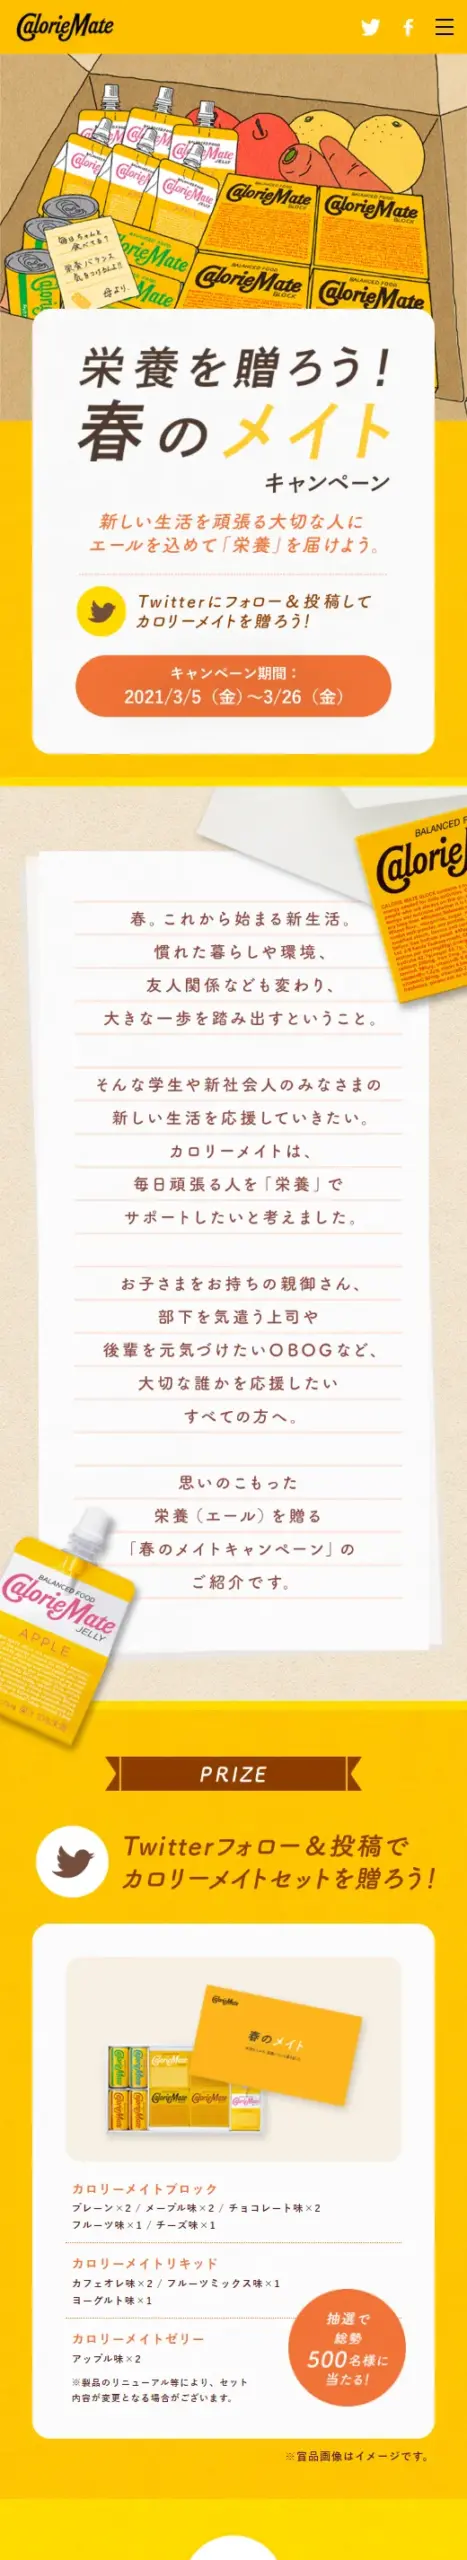 CalorieMate
BALANCED FOOD
CalorieMate
JELLY
BALANCED FOOD
CalorieMate
BLOCK
BALANCED FOOD
CalorieMate
BLOCK
毎日ちゃんと
食べてる?
栄養バランス
気をつけなよ!!
母より.
栄養を贈ろう!
春のメイト
キャンペーン
新しい生活を頑張る大切な人に
エールを込めて「栄養」を届けよう。
Twitterにフォロー&投稿して
カロリーメイトを贈ろう!
キャンペーン期間:
2021/3/5(金)~3/26(金)
BALANCED F
Calorie
春。これから始まる新生活。
慣れた暮らしや環境、
友人関係なども変わり、
大きな一歩を踏み出すということ。
そんな学生や新社会人のみなさまの
新しい生活を応援していきたい。
カロリーメイトは、
毎日頑張る人を「栄養」で
サポートしたいと考えました。
お子さまをお持ちの親御さん、
部下を気遣う上司や
後輩を元気づけたいOBOGなど、
大切な誰かを応援したい
すべての方へ。
思いのこもった
栄養(エール)を贈る
「春のメイトキャンペーン」の
ご紹介です。
BALANCED FOOD
CalorieMate
JELLY
APPLE
PRIZE
Twitterフォロー&投稿で
カロリーメイトセットを贈ろう!
CalorieMate
春のメイト
カロリーメイトブロック
プレーン×2 / メープル味×2 / チョコレート味×2
フルーツ味×1 / チーズ味×1
カロリーメイトリキッド
カフェオレ味×2 / フルーツミックス味×1
ヨーグルト味×1
カロリーメイトゼリー
アップル味×2
※製品のリニューアル等により、セット
内容が変更となる場合がございます。
抽選で
総勢
500名様に
当たる!
※賞品画像はイメージです。